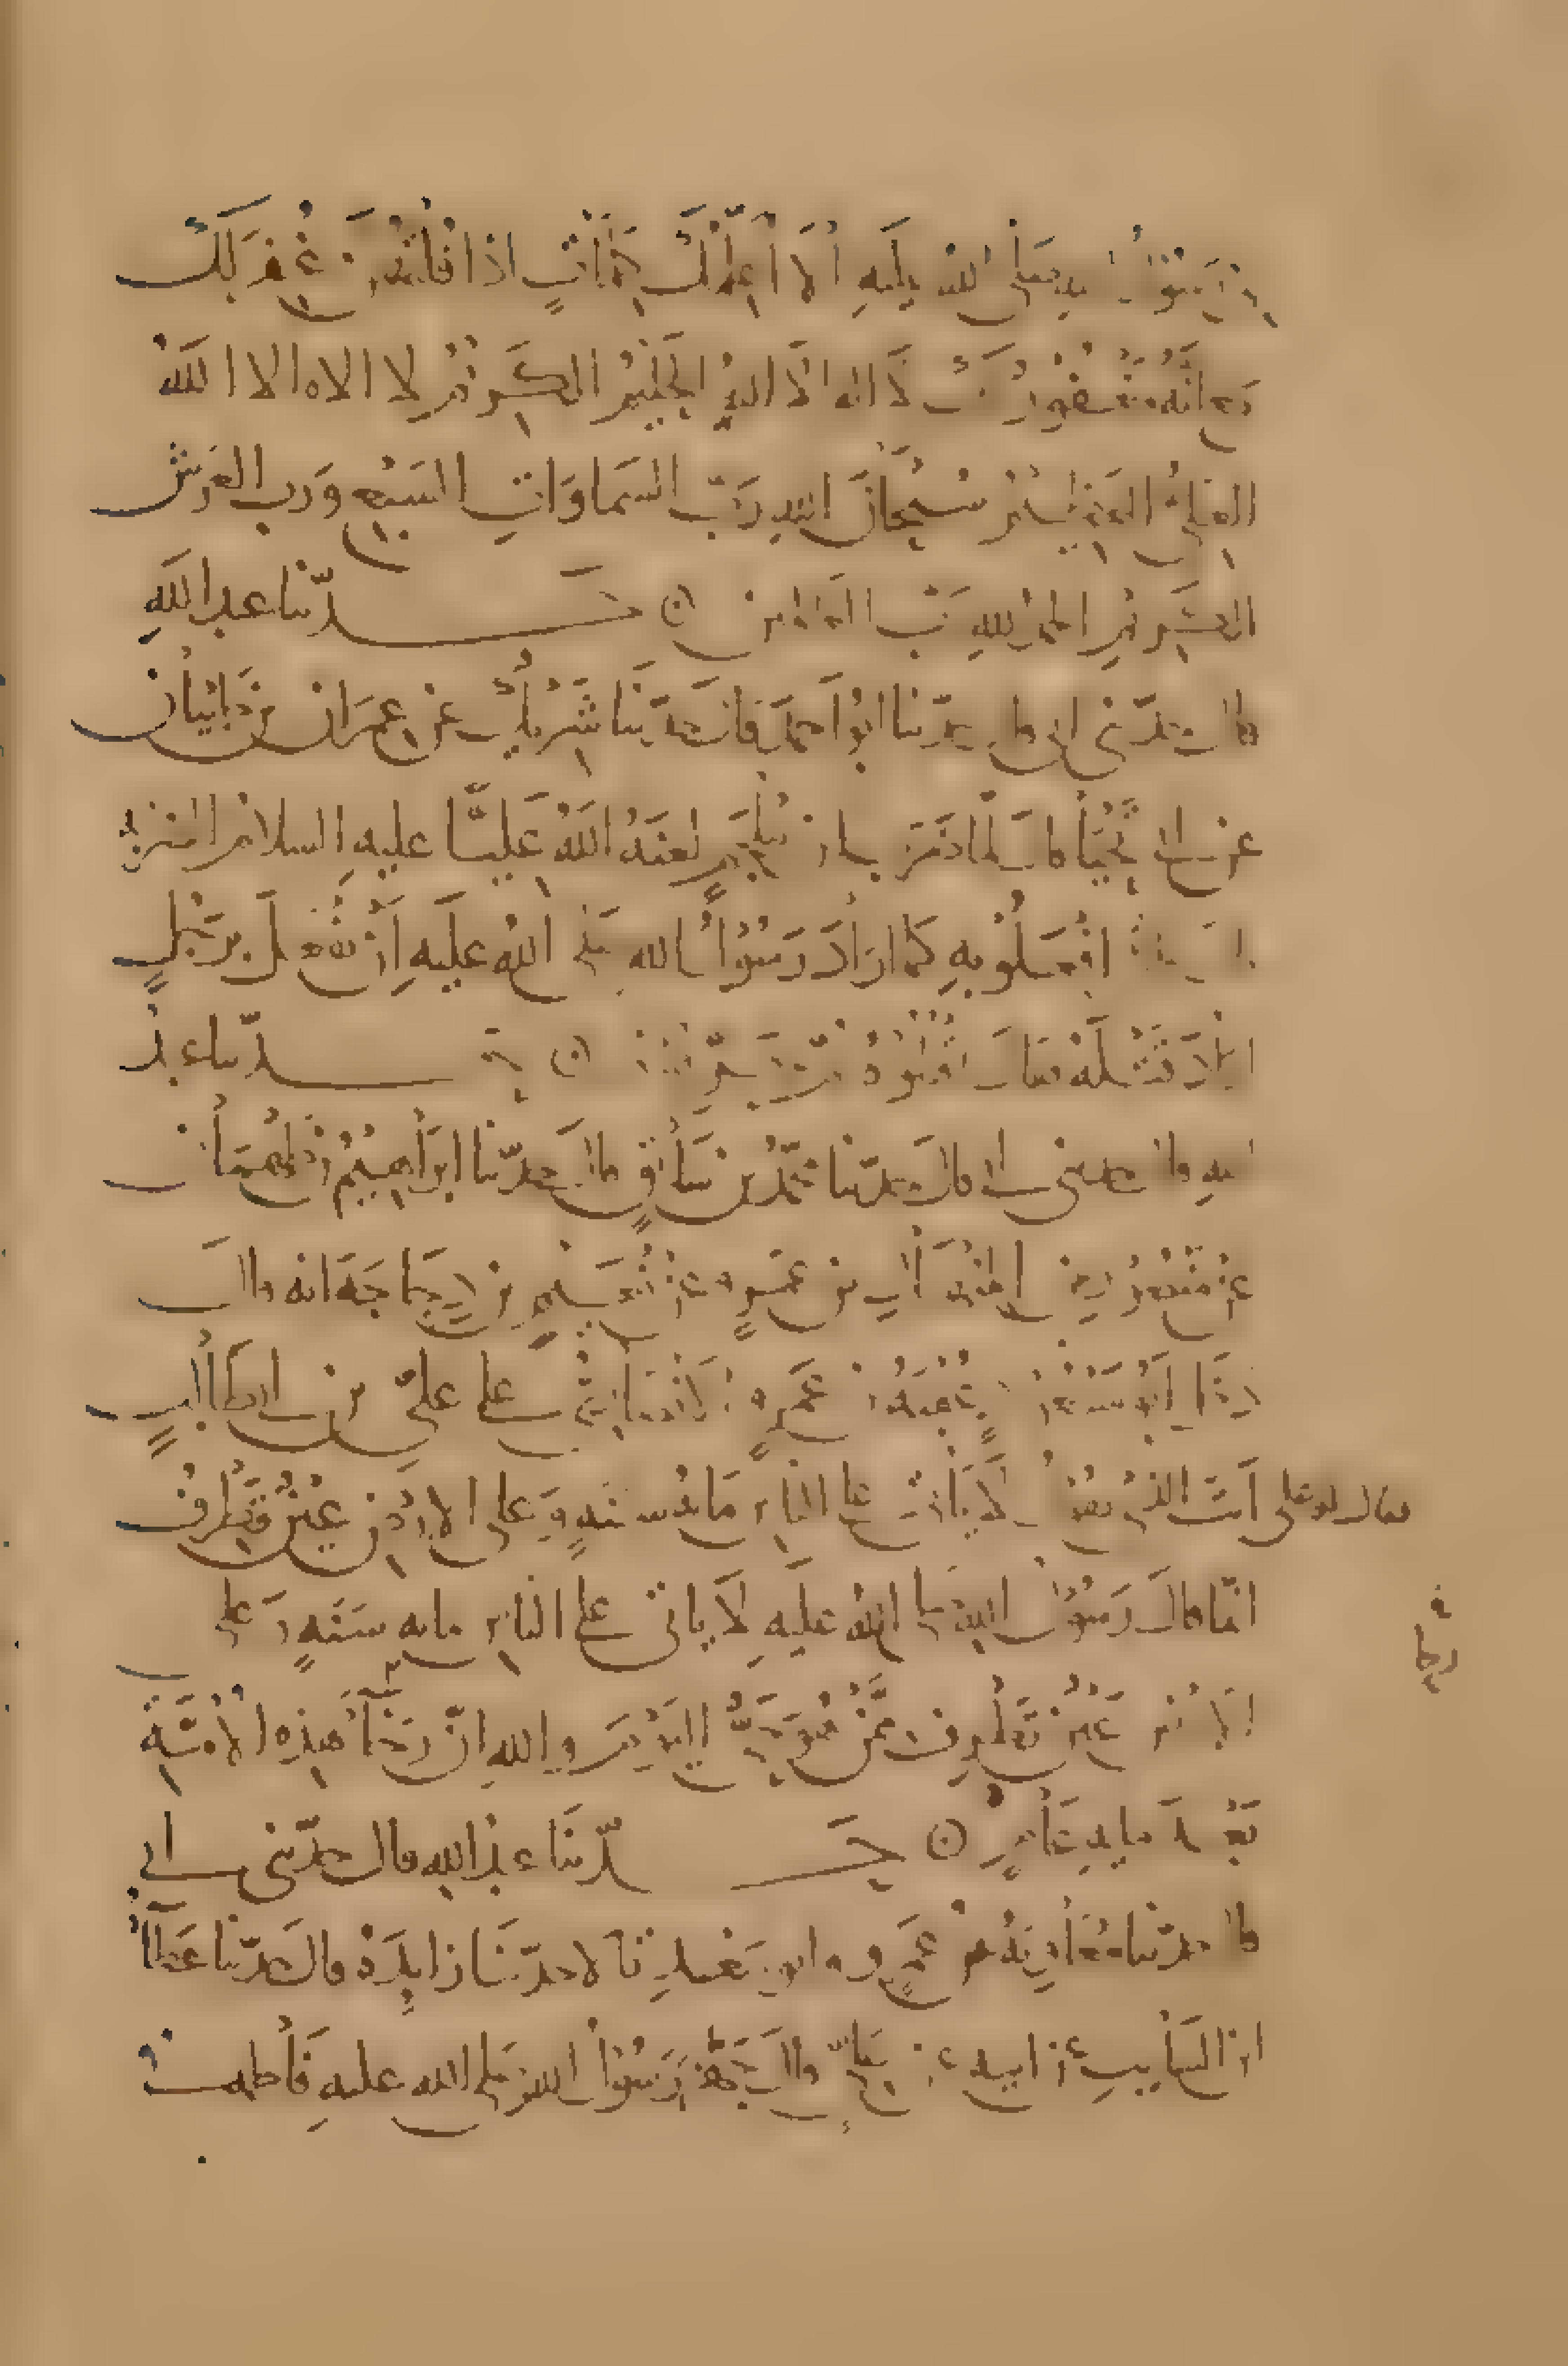 رسول الله صلى الله عليه ألا أعلمك كلمات اذا قلتهن غفر لك
مع انه مغفور لك لا اله الا الله الحليم الكريم لا الاه الا الله
العلي العظيم سبحان الله رب السماوات السبع ورب العرش
الكريم الحمد لله رب العالمين ۞ حدثنا عبد الله
قال حدثني ابي قال حدثنا ابو احمد قال حدثنا شريك عن عمران بن ظبيان
عن ابي تحيا قال لما ضرب ابن ملجم لعنه الله عليا عليه السلام الضربة
قال افعلوا به كما اراد رسول الله صلى الله عليه أن يفعل برجل
اراد قتله فقال اقتلوه ثم حرقوه ۞ حدثنا عبد
الله قال حدثني ابي قال حدثنا محمد بن سابق قال حدثنا ابراهيم بن طهمان
عن منصور عن المنهال بن عمرو عن نعيم بن دجاجة انه قال
دخل ابو مسعود عقبة بن عمرو الانصاري على علي بن ابي طالب
فقال له علي أنت الذي تقول لا يأتي على الناس مائة سنة وعلى الارض عين تطرف
انما قال رسول الله صلى الله عليه لا ياتي على الناس مايه سنة وعلى
الارض عين تطرف ممن هو حي اليوم والله ان رخاء هذه الأمة
بعد مايه عام ۞ حدثنا عبد الله قال حدثني ابي
قال حدثنا معاوية بن عمرو وابو سعيد قالا حدثنا زايدة قال حدثنا عطاء
ابن السايب عن ابيه عن علي قال جهز رسول الله صلى الله عليه فاطمة